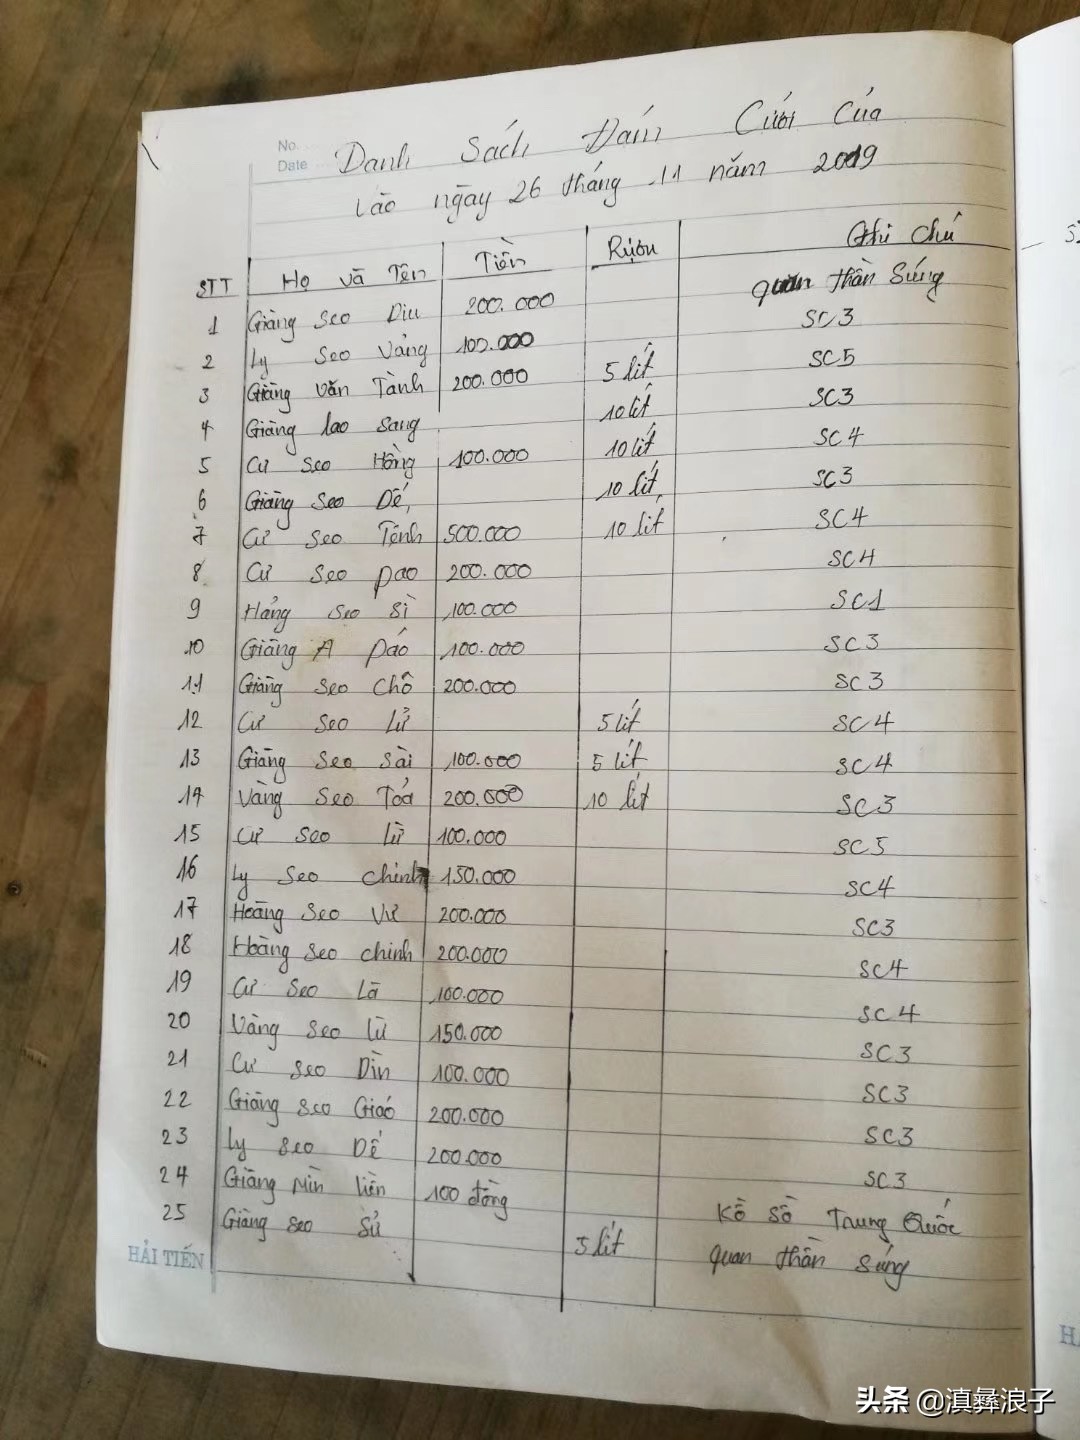 No.
Date
Danh Sách Đám Cưới Của
Vào ngày 26 tháng 11 năm 2019
STT Họ và Tên Tiền Rượu Ghi chú
1 Giàng Seo Diu 200.000 quan thần Súng
2 Ly Seo Vảng 100.000 SC3
3 Giàng Văn Tành 200.000 5 lít SC5
4 Giàng lao Sang 10 lít SC3
5 Cư Seo Hồng 100.000 10 lít SC4
6 Giàng Seo Dế 10 lít SC3
7 Cư Seo Tênh 500.000 10 lít SC4
8 Cư Seo pao 200.000 SC4
9 Hảng Seo Sì 100.000 SC1
10 Giàng A páo 100.000 SC3
11 Giàng Seo Chô 200.000 SC3
12 Cư Seo Lử 5 lít SC4
13 Giàng Seo Sài 100.000 5 lít SC4
14 Vàng Seo Toả 200.000 10 lít SC3
15 Cư Seo lừ 100.000 SC5
16 Ly Seo chinh 150.000 SC4
17 Hoàng Seo Vư 200.000 SC3
18 Hoàng Seo chinh 200.000 SC4
19 Cư Seo Là 100.000 SC4
20 Vàng Seo lù 150.000 SC3
21 Cư Seo Dìn 100.000 SC3
22 Giàng Seo Giáo 200.000 SC3
23 Ly Seo Dể 200.000 SC3
24 Giàng Mìn liền 100 đồng Kồ sồ Trung Quốc
25 Giàng Seo Sử 5 lít quan thần Súng
HẢI TIẾN
头条 @滇彝浪子